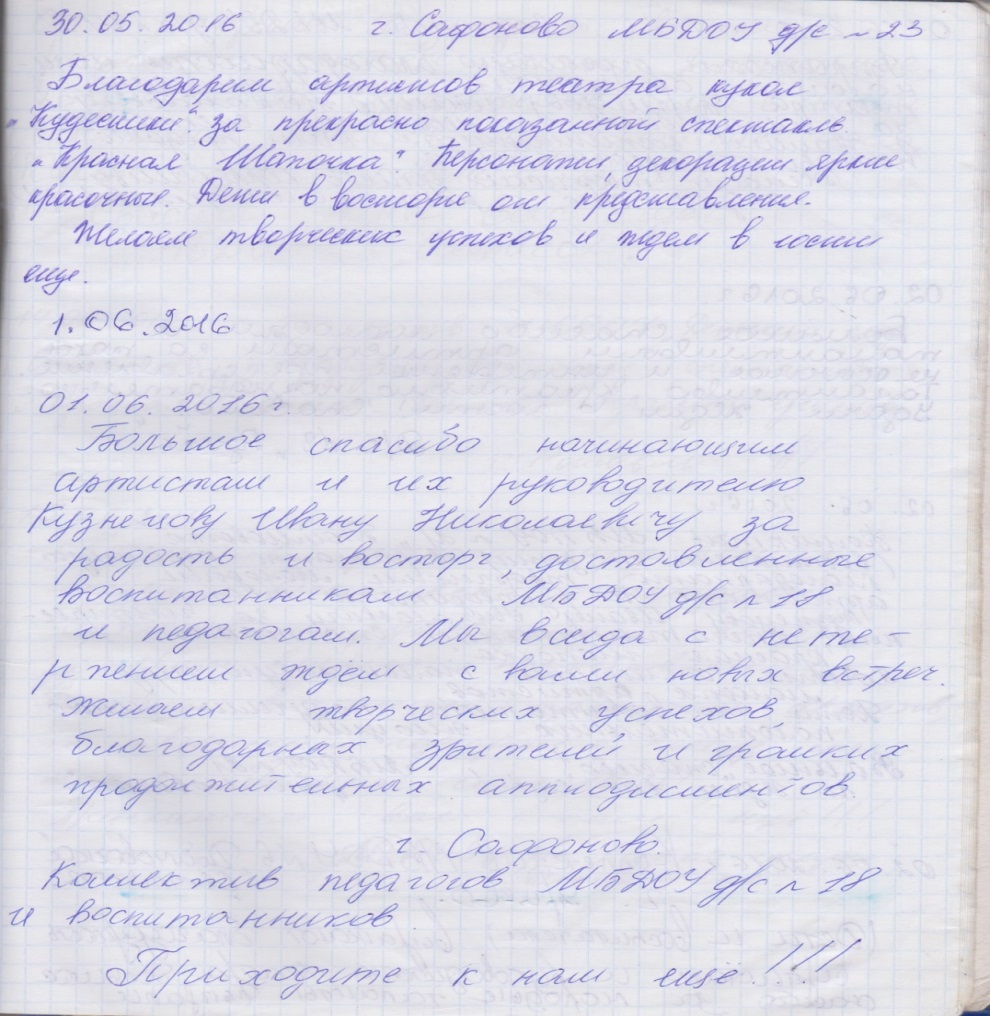 30.05.2016 г. Сафоново МБДОУ д/с №23
Благодарим артистов театра кукол
"Кудесники" за прекрасно показанный спектакль
"Красная Шапочка". Персонажи, декорации яркие
красочные. Дети в восторге от представления.
Желаем творческих успехов и ждем в гости
еще.
1.06.2016
01.06.2016г.
Большое спасибо начинающим
артистам и их руководителю
Кузнецову Ивану Николаевичу за
радость и восторг, доставленные
воспитанникам МБДОУ д/с №18
и педагогам. Мы всегда с нете-
рпением ждем с вами новых встреч.
Желаем творческих успехов,
благодарных зрителей и громких
продолжительных апплодисментов.
г. Сафоново.
Коллектив педагогов МБДОУ д/с №18
и воспитанников
Приходите к нам ещё...!!!